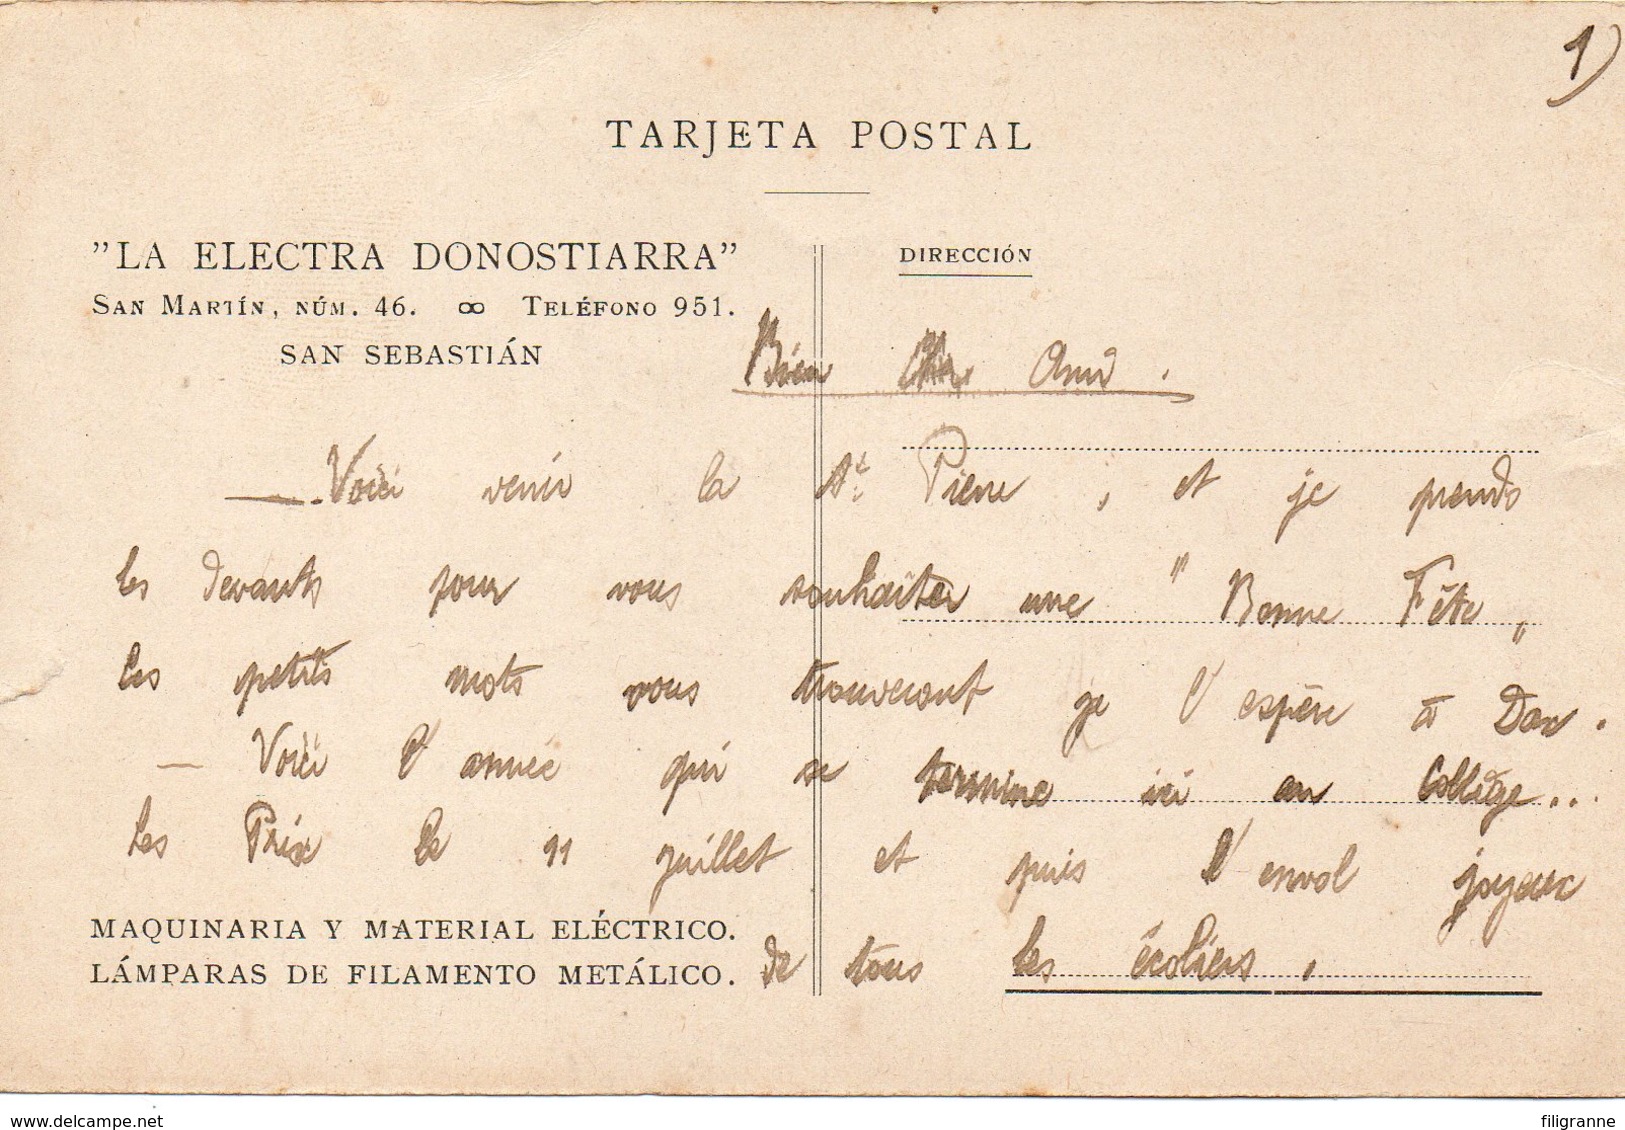 1)
TARJETA POSTAL
"LA ELECTRA DONOSTIARRA"
SAN MARTÍN, NÚM. 46. ∞ TELÉFONO 951.
SAN SEBASTIÁN
DIRECCIÓN
Bien Cher Ami.
— Voici venir la St Pierre, et je prends
les devants pour vous souhaiter une "Bonne Fête„
Ces petits mots vous trouveront je l'espère à Dax.
— Voici l'année qui se termine ici au Collège...
les Prix le 11 juillet et puis l'envol joyeux
de tous les écoliers.
MAQUINARIA Y MATERIAL ELÉCTRICO.
LÁMPARAS DE FILAMENTO METÁLICO.
www.delcampe.net
filigranne